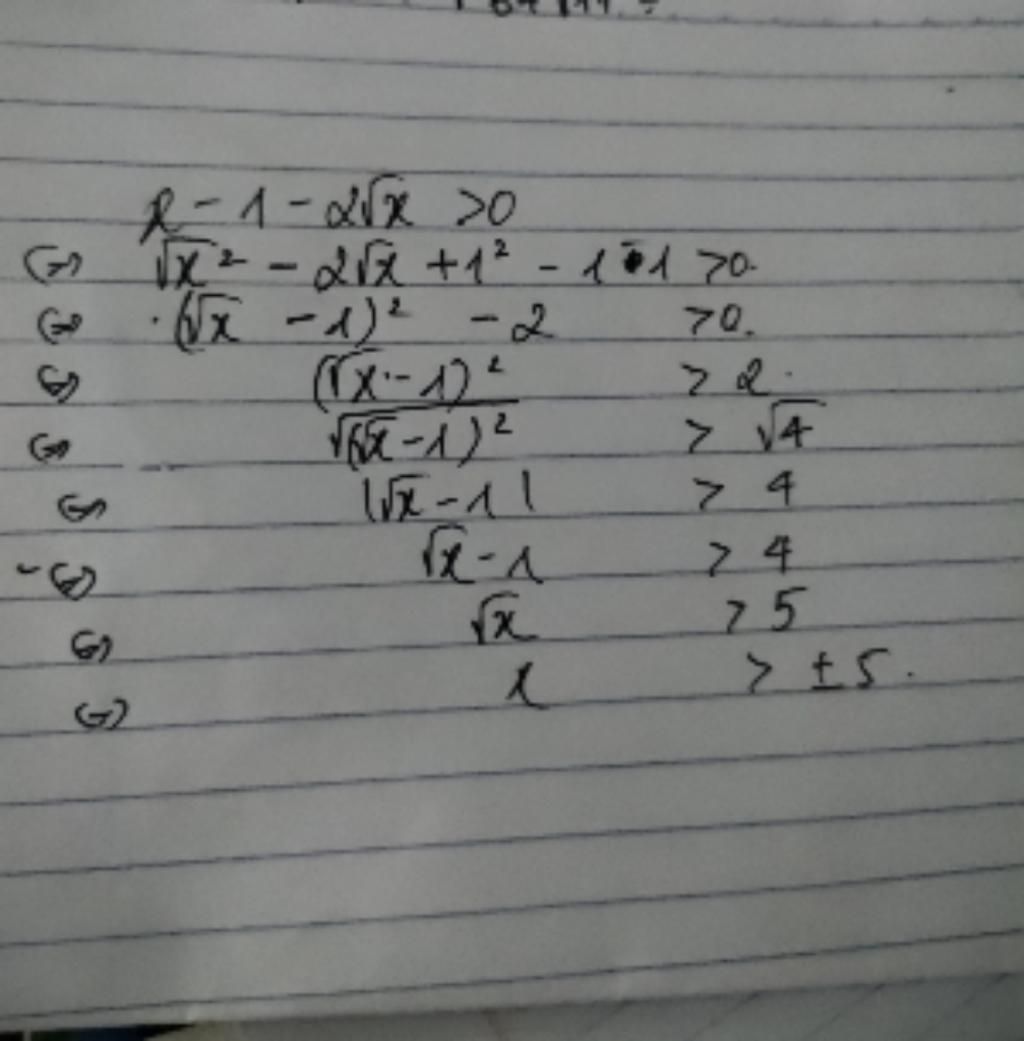 x - 1 - 2√x > 0
⇔ √x² - 2√x + 1² - 1 - 1 > 0.
⇔ (√x - 1)² - 2 > 0.
⇔ (√x - 1)² > 2.
⇔ √(√x - 1)² > √4
⇔ |√x - 1| > 4
- ⇔ √x - 1 > 4
⇔ √x > 5
⇔ x > ± 5.